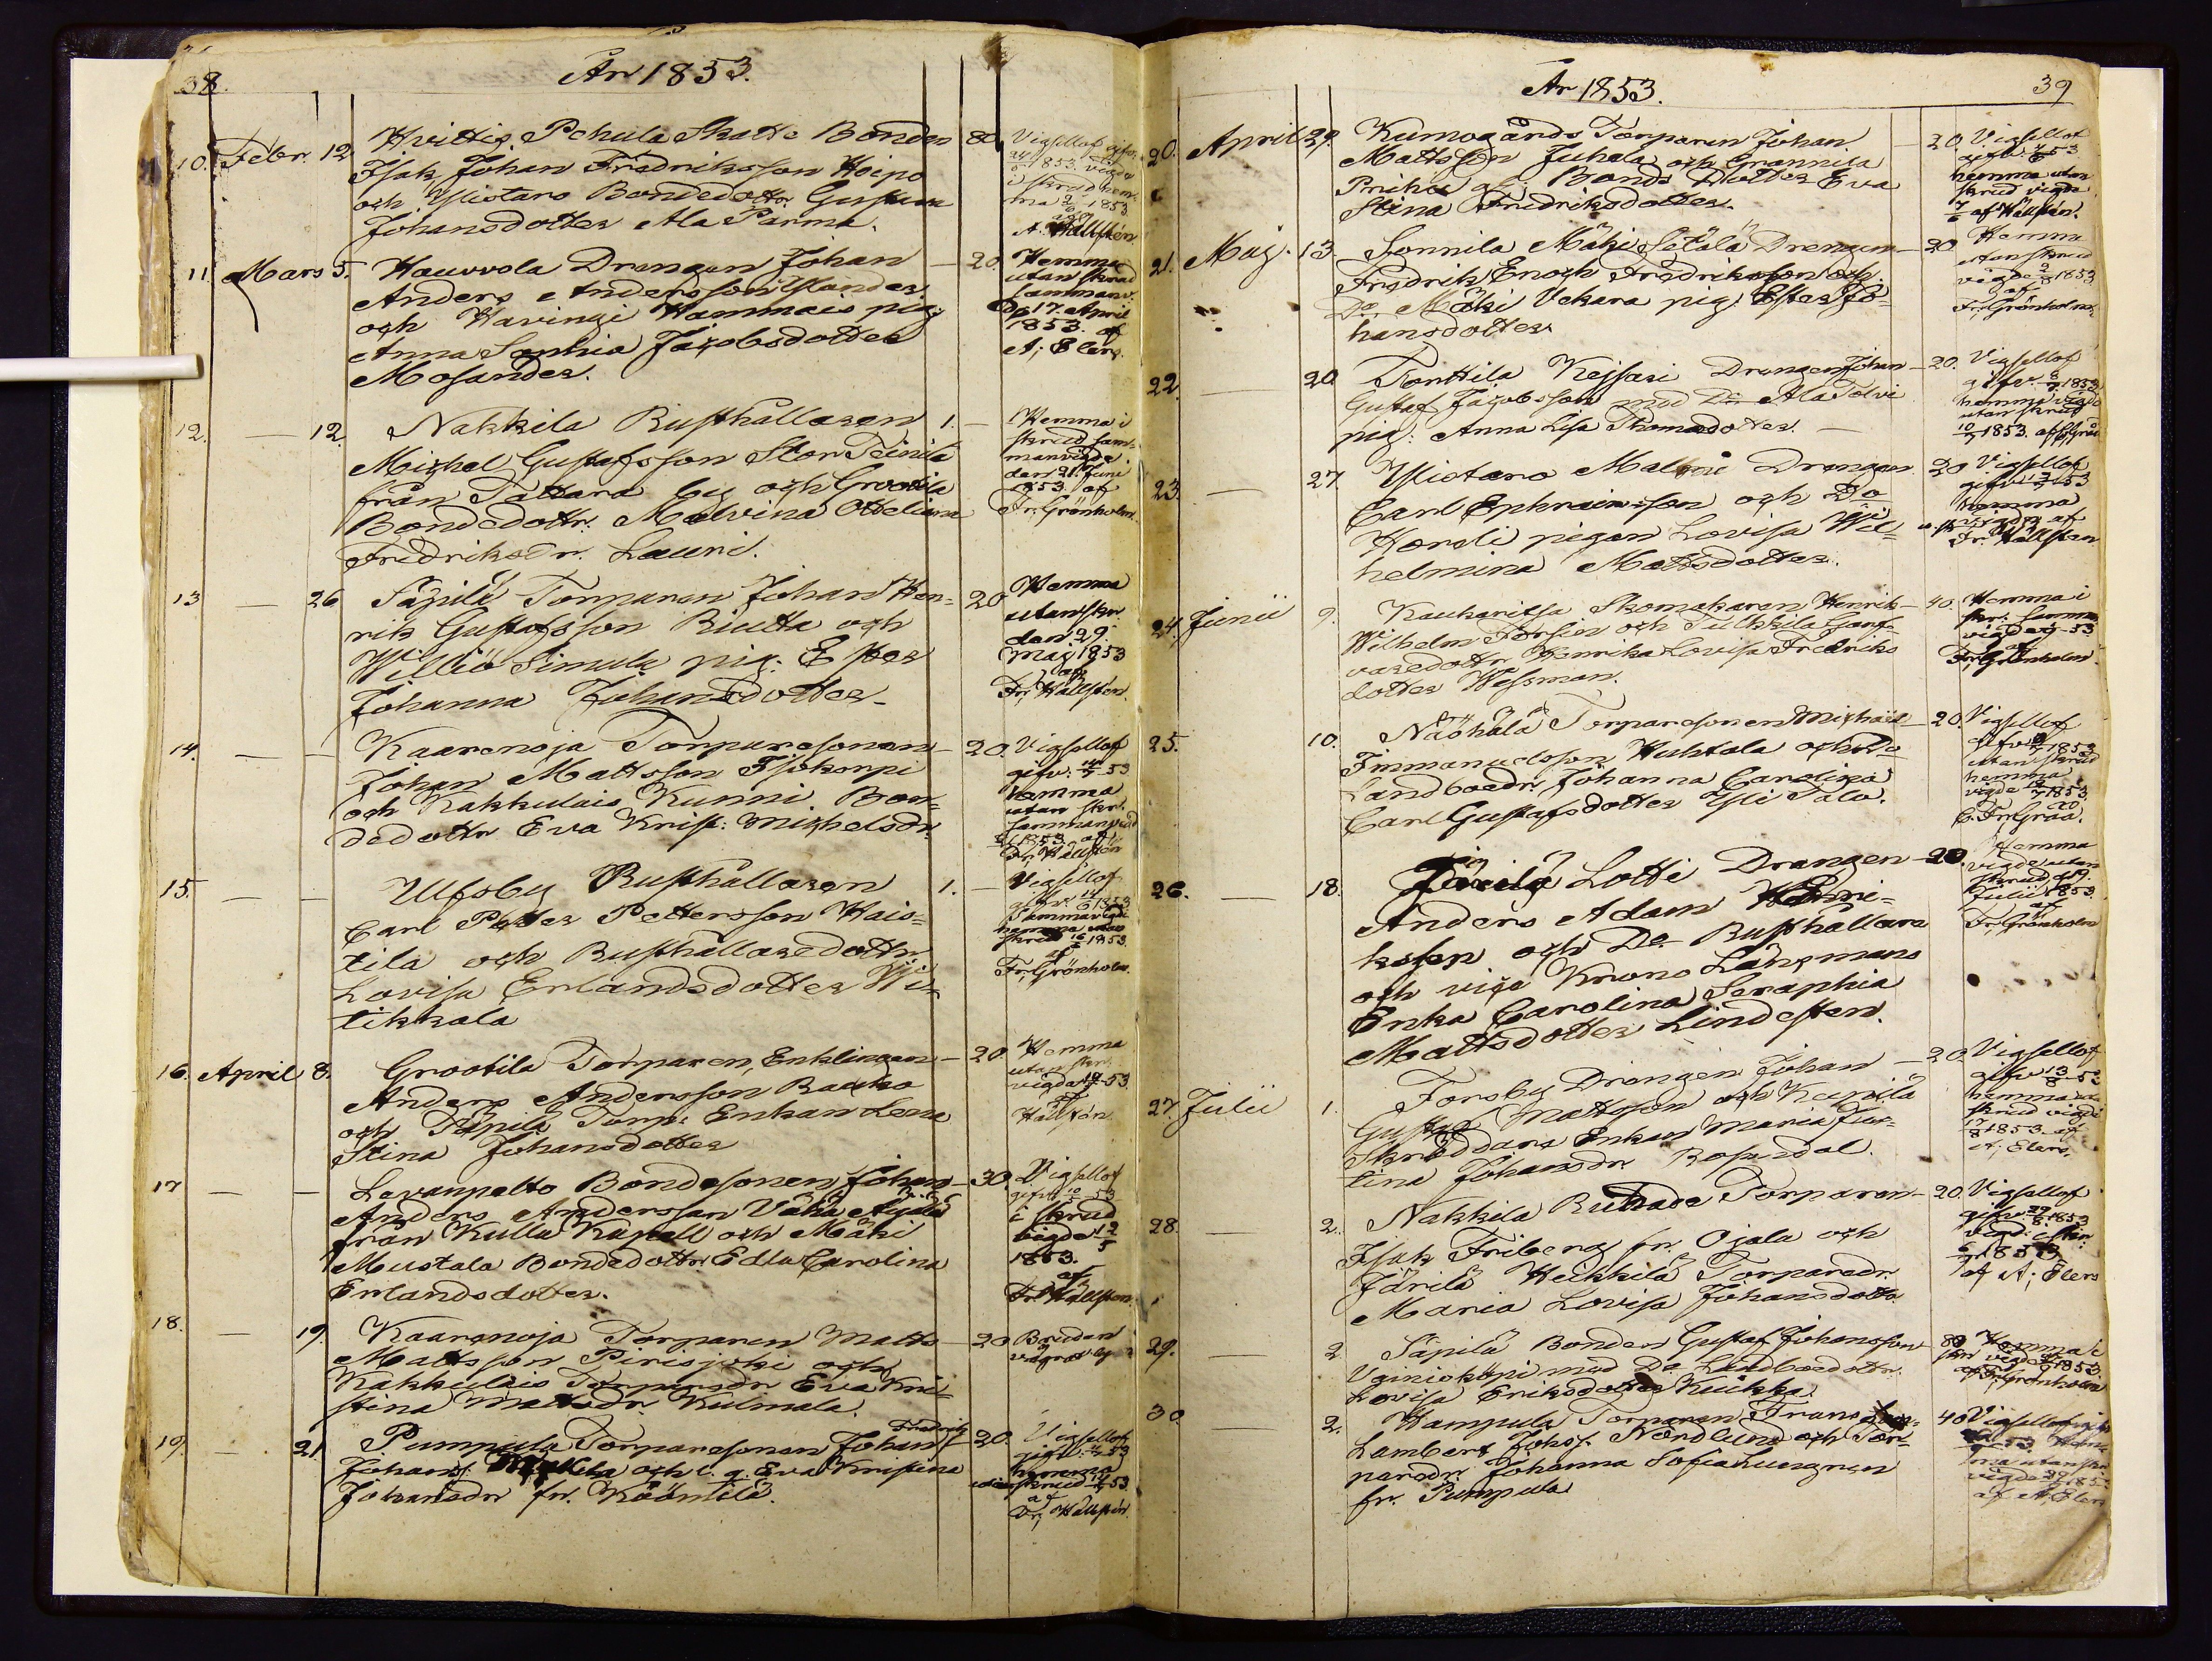 38.
År 1853.
10. Febr. 12. Hvittis Pehula Skatte Bonden 80.
Isak Johan Fredriksson Hoipo
och Ylistaro Bondedottr Gustava
Johansdotter Ala Parma.
Vigsellof gifv.
1853. vigde
i skrud hem-
ma 1853.
af
A. Hällsten
11. Mars 5. Hauvvola Drengen Johan — 20.
Anders Andersson Ylander
och Havingi Hammais pig.
Anna Sophia Jacobsdotter
Mosander.
Hemma
utan skrud
sammanv.
d. 17. April
1853. af
A; Elers.
12. — 12. Nakkila Rusthållaren 1. —
Michel Gustafsson Stor Teinilä
från Tattara by och Grootila
Bondedottr. Malvina Otteliana
Fredriksdr. Lauri.
Hemma i
skrud sam-
manvigde
den 21. Juni
1853. af
Fr. Grönholm.
13 — 26 Säpilä Torparen Johan Hen- 20
rik Gustafsson Riutta och
Williö Simula pig. Ester
Johanna Johansdotter.
Hemma
utan skr.
den 29.
Maj 1853
af
Fr; Hällsten.
14. — — Kaarenoja Torparesonen — 20.
Johan Mattsson Isokorpi
och Kakkulais Kunni Bon-
dedottr Eva Krist: Michelsdr.
Vigsellof
gifv. 53
hemma
utan skr.
sammanvigd
1853. af
Fr. Hällsten
15. — — Ulfsby Rusthållaren 1. —
Carl Petter Pettersson Hais-
tila och Rusthållaredottr.
Lovisa Erlandsdotter Wii-
tikkala
Vigsellof
gifv. 1853
Sammanvigde
hemma utan
skrud 16/6 1853.
af
Fr; Grönholm.
16. April 8. Grootila Torparen, Enklingen — 20
Anders Andersson Rauko
och Säpilä Torp: Enkan Lena
Stina Johansdotter
Hemma
utan skr.
vigda 53.
af
Hällstén
17 — — Levanpelto Bondesonen Johan — 30.
Anders Andersson Vähä Äijälä
från Kulla Kapell och Mäki
Mustala Bondedottr Edla Carolina
Erlandsdotter.
Vigsellof
gifv. 53
i skrud
vigde 12/5
1853.
af
Fr. Hällsten.
18. — 19. Kaarenoja Torparen Matts — 20
Mattsson Pirisjoki och
Kakkulais Torparedr Eva Kri-
stina Mattsdr. Kulmala.
Bruden
vägrat
19. — 21. Pumpula Torparesonen Johan Fredrik 20.
Johans. och l. g. Eva Kristina
Johansdr fr. Köömilä.
Vigsellof
gifv. 53
hemma
utan skrud 53.
af
Fr; Hällstén.
39
År 1853.
20. April 29. Kumogårds Torparen Johan — 20
Mattsson Juhala och Grannila
Prihti Bonde Dotter Eva
Stina Fredriksdotter.
Vigsellof
gifv. 53
hemma utan
skrud vigda
7/6 af Hällstén.
21. Maj. 13. Sonnila Mäki Setälä Drengen — 20
Fredrik Enoch Fredriksson och
Do Mäki Vekara pig: Ester Jo-
hansdotter
Hemma
utan skrud
vigde 1853
af
Fr; Grönholm.
22. — 20 Torttila Kejsari Drengen Johan — 20.
Gustaf Jacobsson med Do Ala Tolvi
pig: Anna Lisa Thomasdotter. —
Vigsellof
gifv. 8/7 1853
hemma vigde
utan skrud
10/7 1853. af
23. — 27. Ylistaro Drengen 20
Carl Ephraimsson och Do
Hordi pigan Lovisa Wil-
helmina Mattsdotter.
Vigsellof
gifv. 53
hemma
u. skr. vigda af
Fr. Hällsten
24. Junii 9. Kaukaritsa Skomakaren Henrik — 40.
Wilhelm Forsien och Tulkkila Garf-
varedottr Henrika Lovisa Fredriks
dotter Wessman.
Hemma i
skr. samman
vigde 53.
af
Fr; Grönholm.
25. 10. Näöhälä Torparesonen Michaël — 20.
Immanuelsson Huhtala och Do
Landboedr Johanna Carolina
Carl Gustafsdotter Yli Talo.
Vigsellof
gifv. 1853
utan skrud
hemma
vigde 1853.
C. Fr; Gråå.
26. — 18. Lotti Drengen — 20.
Anders Adam Henri-
ksson och Do Rusthållare
och vice Krono Länsmans
Enka Carolina Seraphia
Mattsdotter Lindsten.
Hemma
vigde utan
skrud d 19.
Julii 1853.
af
Fr; Grönholm
27. Julii 1. Forsby Drengen Johan — 20
Gustaf Mattsson och Kupila
Skräddare Enkan Maria Jus-
tina Johansdr Rosendal.
Vigsellof
gifv 13/8 53
hemma utan
skrud vigde
17/8 1853. af
A; Elers.
28. — 2. Nakkila Ruhade Torparen — 20
Isak Friberg fr. Ojala och
Järilä Heikkilä Torparedr.
Maria Lovisa Johansdotter
Vigsellof
gifv. 1853
vigd. i skr.
1853
af A; Elers
29. — 2. Säpilä Bonden Gustaf Johansson 80
med Do Landboedottr.
Lovisa Eriksdotter Kuikka.
Hemma i
skr vigde 1853.
af Fr; Grönholm
30 — 2. Hampula Torparen Frans 40
Lambert Johs. Nordlund och Tor-
paredr. Johanna Sofia
fr. Pumpula
Vigsellof
53 hem-
ma utan skr
vigde 1853.
af A; Elers